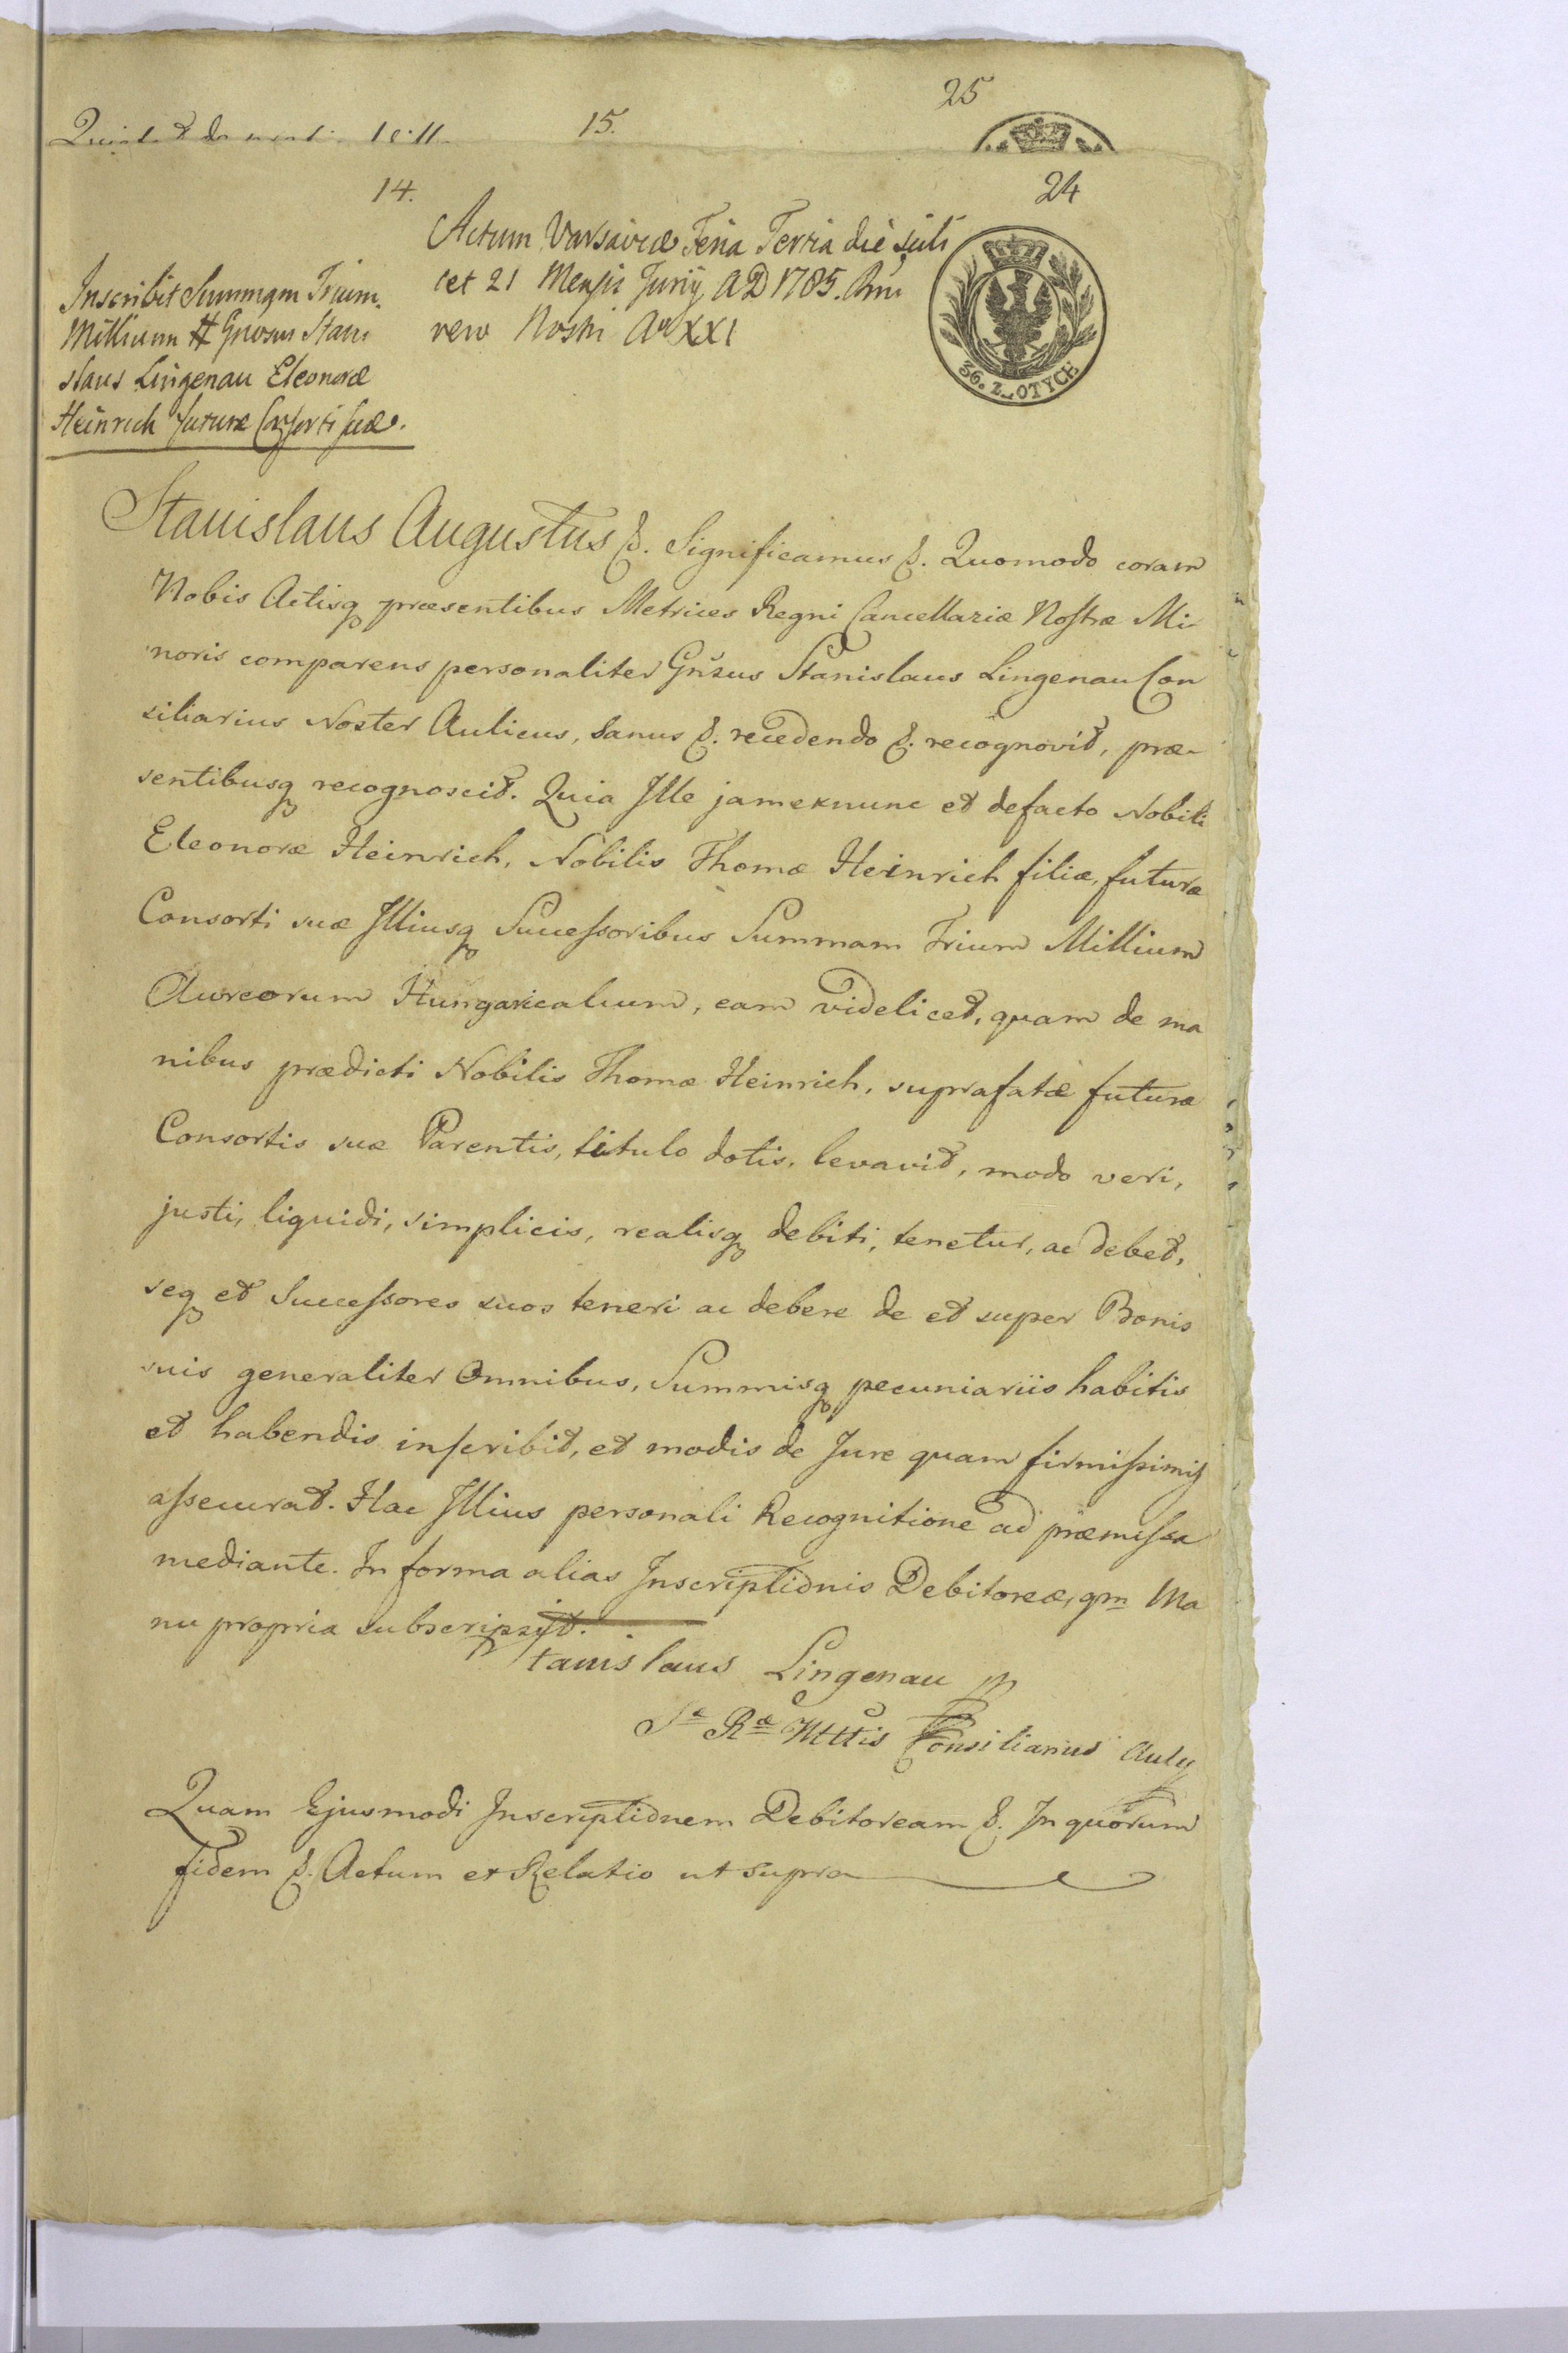 25
15.
14.
24
Actum Varsaviæ Feria Tertia die scili
cet 21 Mensis Junij AD 1785. Rni
vero Nostri Ao XXI
36. ZŁOTYCH
Inscribit Summam Trium
Millium # Gnosus Stani
slaus Lingenau Eleonoræ
Heinrich futuræ Consorti suæ.
Stanislaus Augustus &. Significamus &. Quomodo coram
Nobis Actisq præsentibus Metrices Regni Cancellariæ Nostræ Mi-
noris comparens personaliter Gnsus Stanislaus Lingenau Con
siliarius Noster Aulicus, sanus &. recedendo &. recognovit, præ-
sentibusq recognoscit. Quia Ille jamexnunc et defacto Nobili
Eleonoræ Heinrich, Nobilis Thomæ Heinrich filiæ, futuræ
Consorti suæ Illiusq Successoribus Summam Trium Millium
Aureorum Hungaricalium, eam videlicet, quam de ma
nibus prædicti Nobilis Thomæ Heinrich, suprafatæ futuræ
Consortis suæ Parentis, titulo dotis, levavit, modo veri,
justi, liquidi, simplicis, realisq debiti, tenetur, ac debet,
seq et Successores suos teneri ac debere de et super Bonis
suis generaliter Omnibus, Summisq pecuniariis habitis
et habendis inscribit, et modis de Jure quam firmissimis
assecurat. Hac Illius personali Recognitione ad præmissa
mediante. In forma alias Inscriptionis Debitoreæ, qm Ma
nu propria subscripsit.
Stanislaus Lingenau
Sæ Ræ Mttis Consiliarius Auly
Quam Ejusmodi Inscriptionem Debitoream &. In quorum
fidem &. Actum et Relatio ut supra